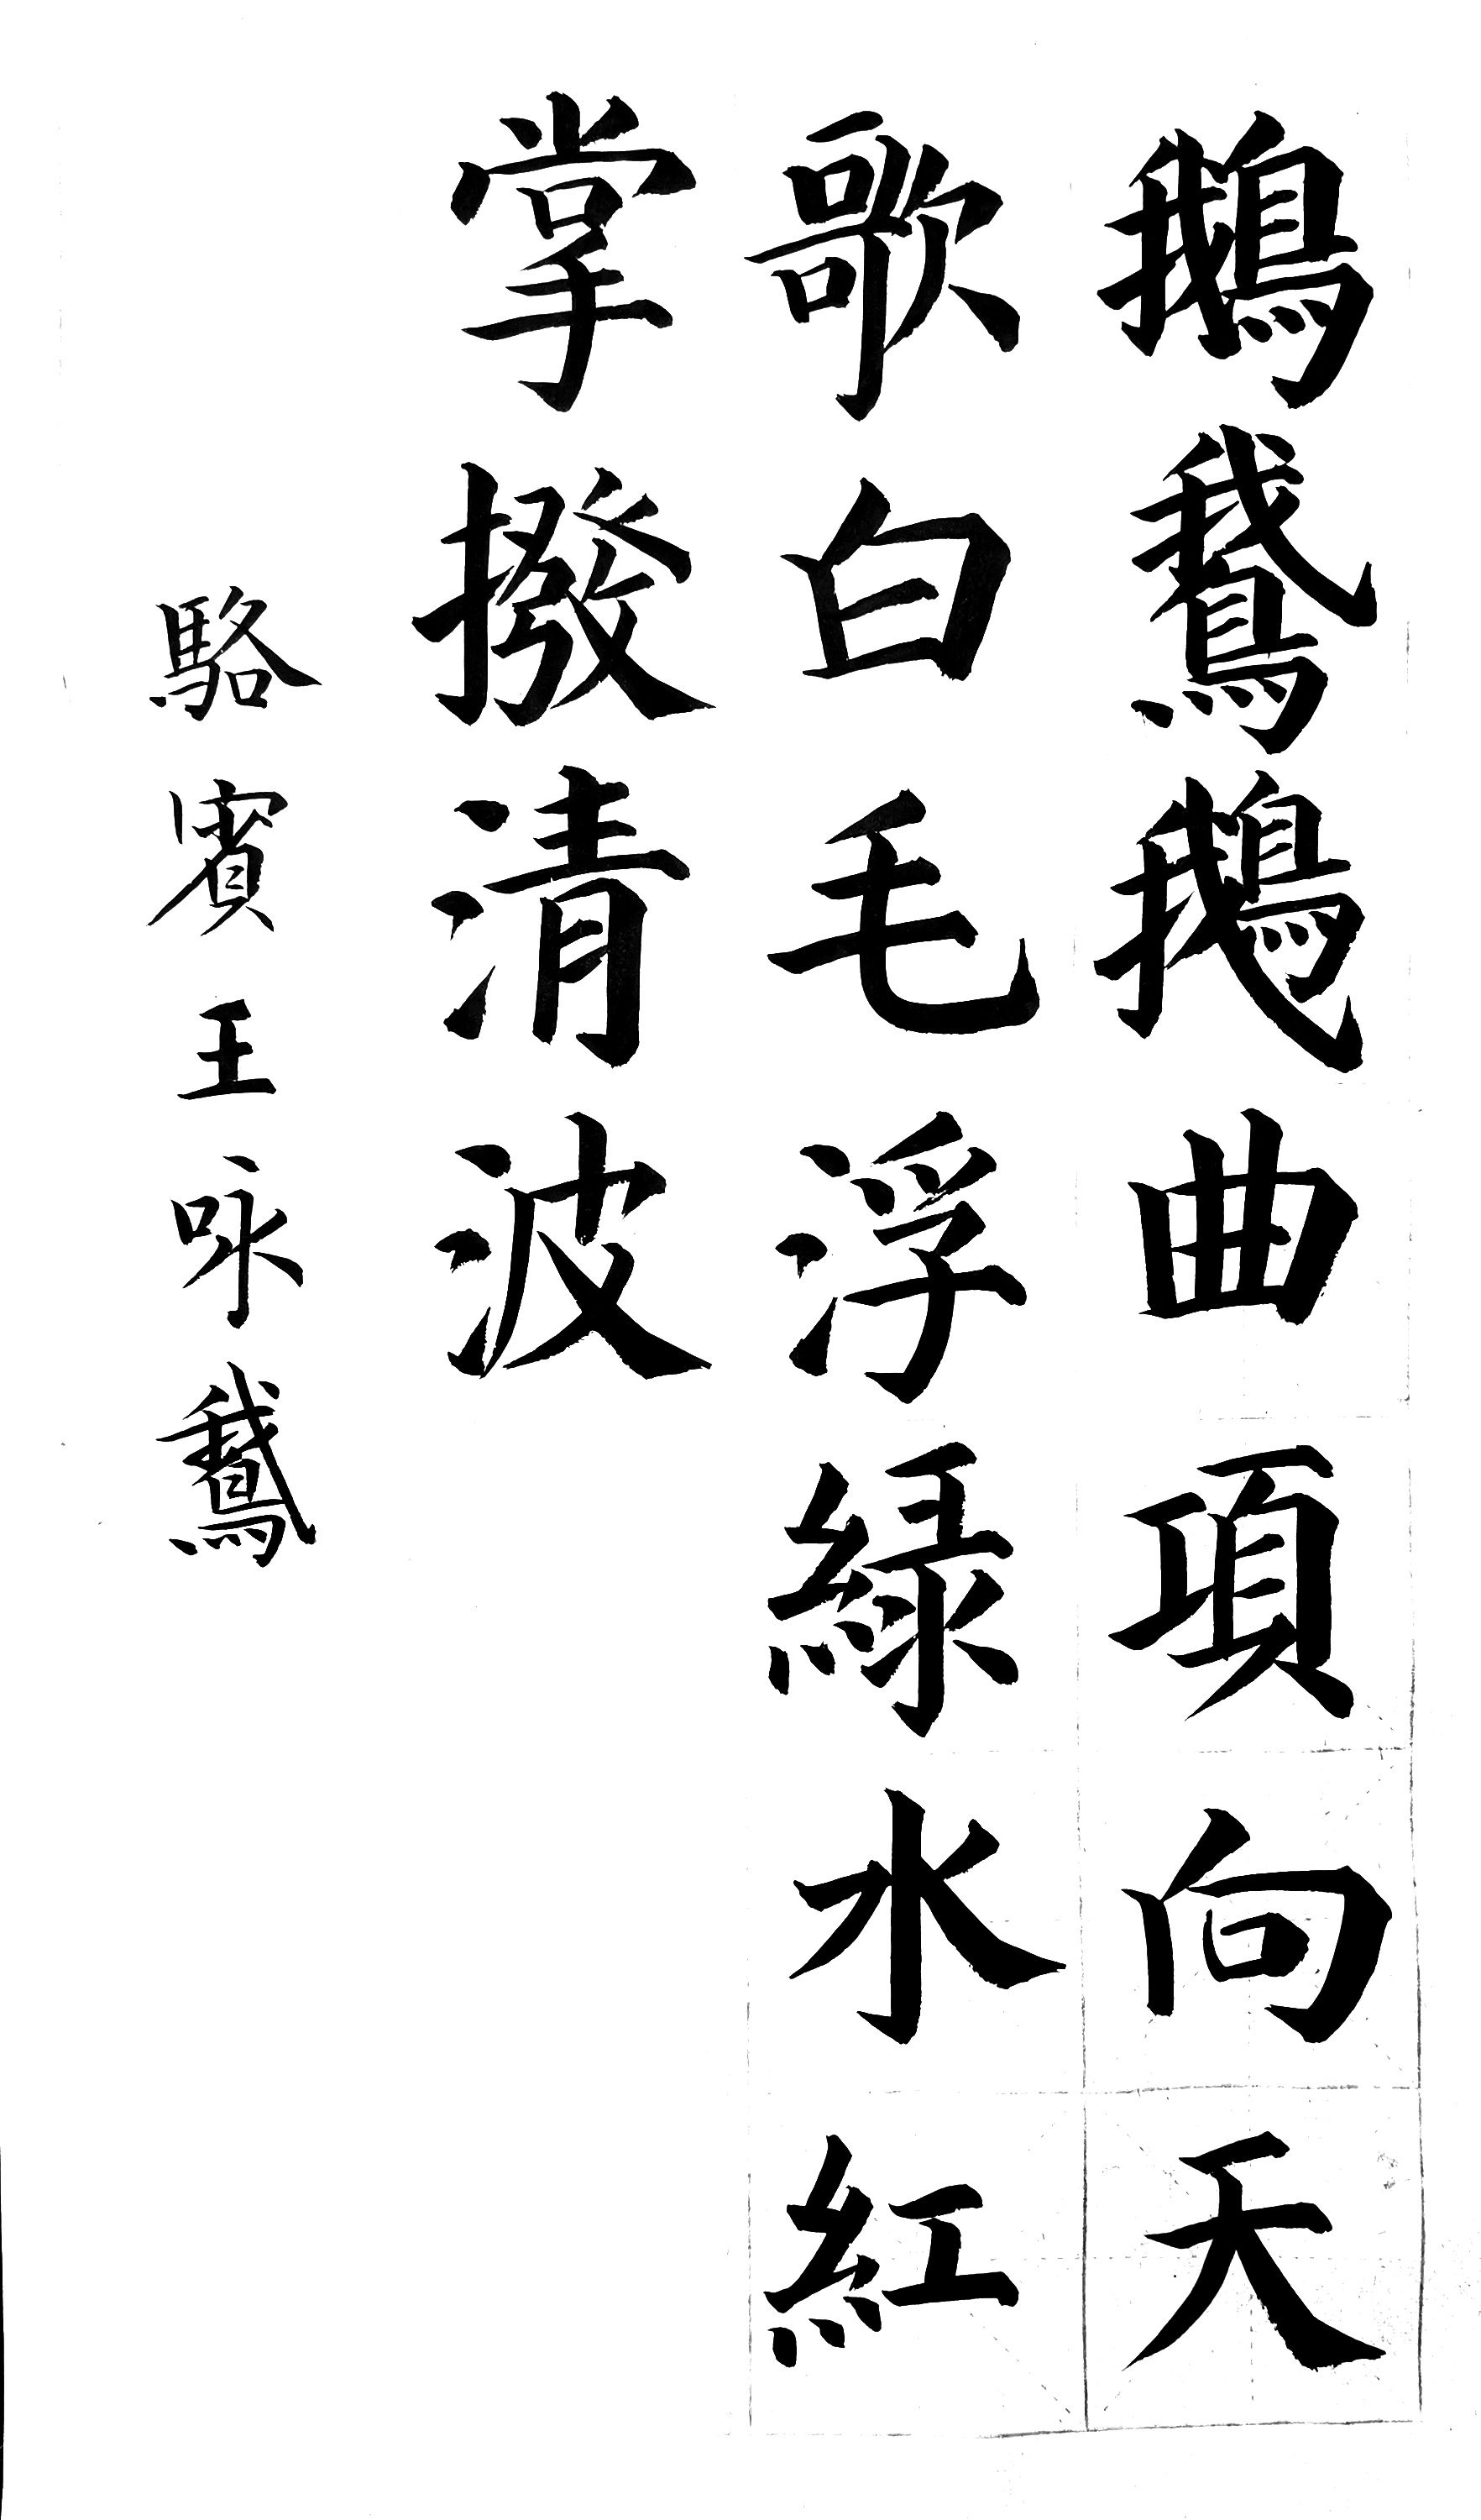 鵝鵞鵝曲項向天
歌白毛浮綠水紅
掌撥清波
駱賓王咏鵞